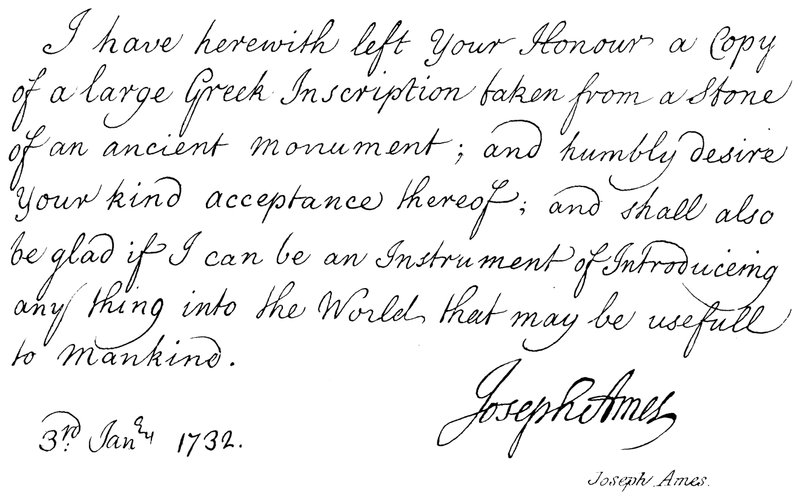 I have herewith left Your Honour a Copy
of a large Greek Inscription taken from a Stone
of an ancient monument; and humbly desire
Your kind acceptance thereof; and shall also
be glad if I can be an Instrument of Introduceing
any thing into the World that may be usefull
to mankind.
Joseph Ames
3rd. Janry 1732.
Joseph Ames.